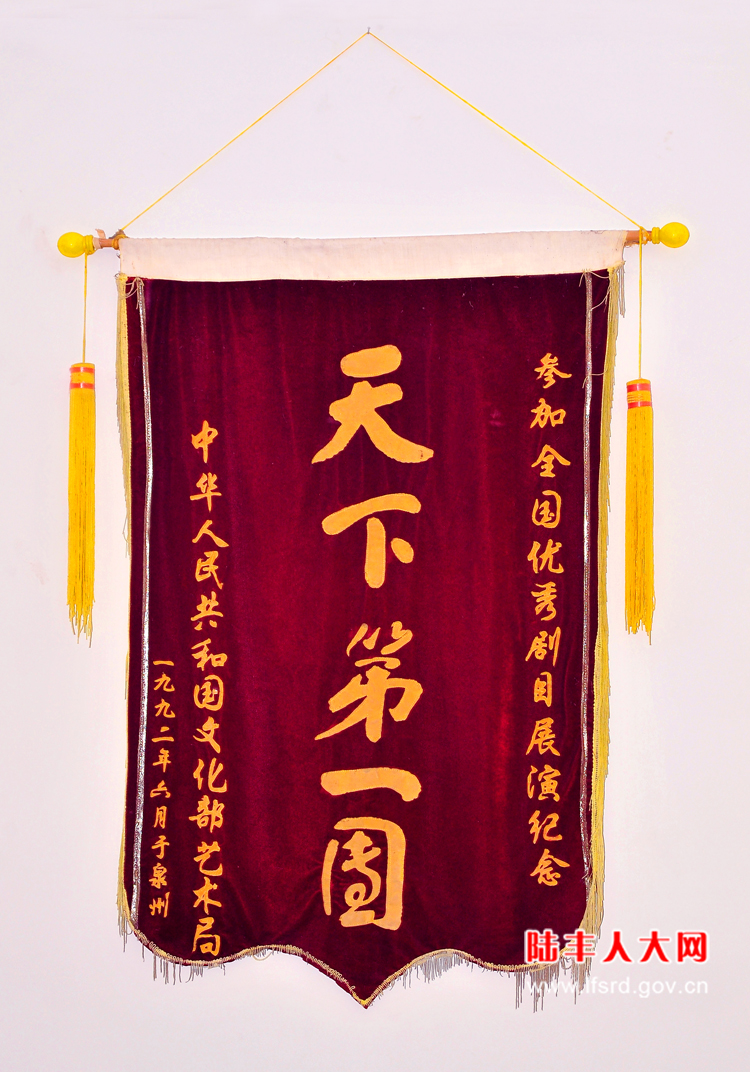 参加全国优秀剧目展演纪念
天下第一團
中华人民共和国文化部艺术局
一九九二年六月于泉州
陆丰人大网
www.lfsrd.gov.cn